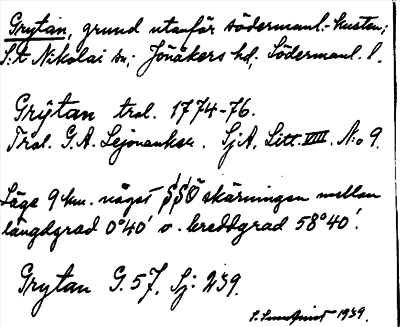 Grytan, grund utanför södermanl. kusten;
S:t Nikolai sn; Jönåkers hd, Södermanl. l.
Grÿtan trol. 1774-76.
Trol. G.A. Lejonanckar. SjA, Litt. VIII. N:o 9.
Läge 9 km. något SSÖ skärningen mellan
längdgrad 0°40′ o. breddgrad 58°40′.
Grytan G.57, Sj: 239.
S. Sundqvist 1939.